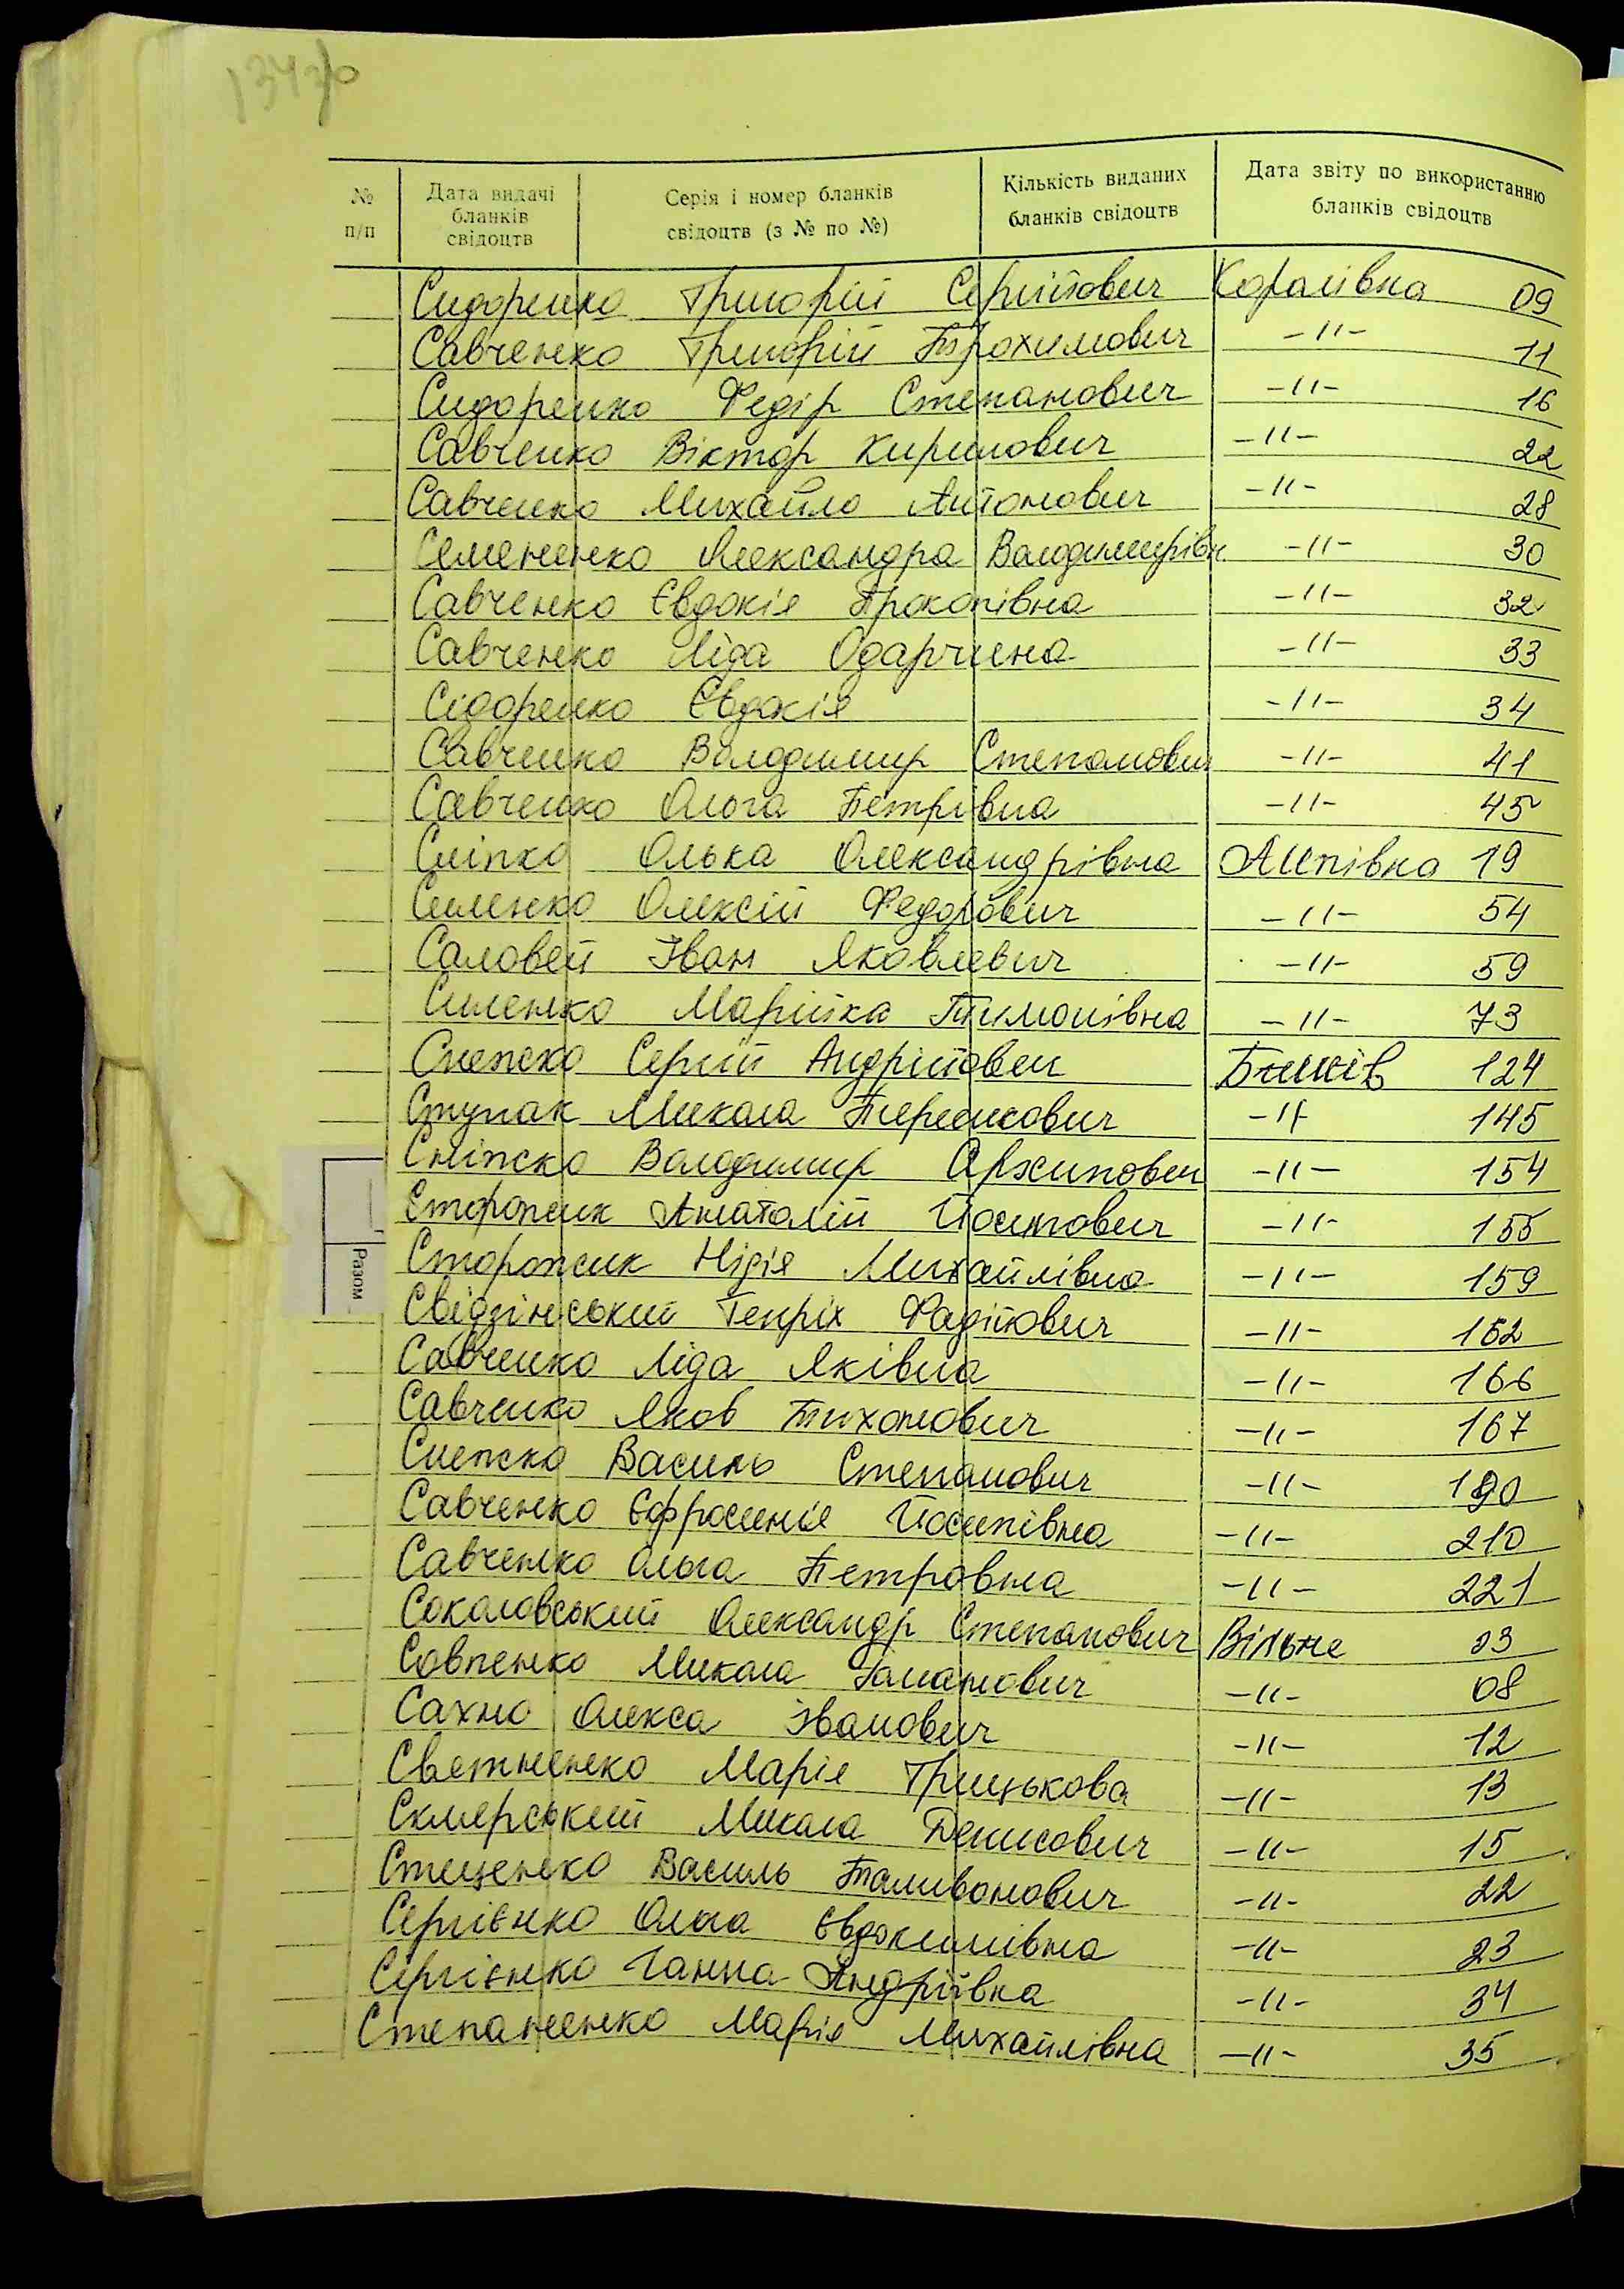 134зв
№ п/п Дата видачі бланків свідоцтв Серія і номер бланків свідоцтв (з № по №) Кількість виданих бланків свідоцтв Дата звіту по використанню бланків свідоцтв
Сидоренко Григорій Сергійович Королівка 09
Савченко Григорій Трохимович -//- 11
Сидоренко Федір Степанович -//- 16
Савченко Віктор Кирилович -//- 22
Савченко Михайло Антонович -//- 28
Семененко Олександра Володимирівн. -//- 30
Савченко Євдокія Прокопівна -//- 32
Савченко Ліда Одарчина -//- 33
Сідоренко Євдокія -//- 34
Савченко Володимир Степанович -//- 41
Савченко Ольга Петрівна -//- 45
Сліпко Олька Олександрівна Липівка 19
Силенко Олексій Федорович -//- 54
Саловей Іван Яковлевич -//- 59
Силенко Марійка Тимошівна -//- 73
Слепско Сергій Андрійович 124
Ступак Микола -//- 145
Сліпско Володимир Архипович -//- 154
Сторожик Анатолій Йосипович -//- 155
Сторожик Нідія Михайлівна -//- 159
Разом
Свідзінський Генріх Фадійович -//- 162
Савченко Ліда Яківна -//- 166
Савченко Яков Тихонович -//- 167
Слепско Василь Степанович -//- 190
Савченко Єфросинія Йосипівна -//- 210
Савченко Ольга Петровна -//- 221
Соколовський Олександр Степанович Вільне 03
Совпенко Микола -//- 08
Сахно Олекса Іванович -//- 12
Светненко Марія Грицькова -//- 13
Склярський Микола Денисович -//- 15
Стеценко Василь -//- 22
Сергієнко Ольга Євдокимівна -//- 23
Сергієнко Ганна Андріївна -//- 34
Степаненко Марія Михайлівна -//- 35